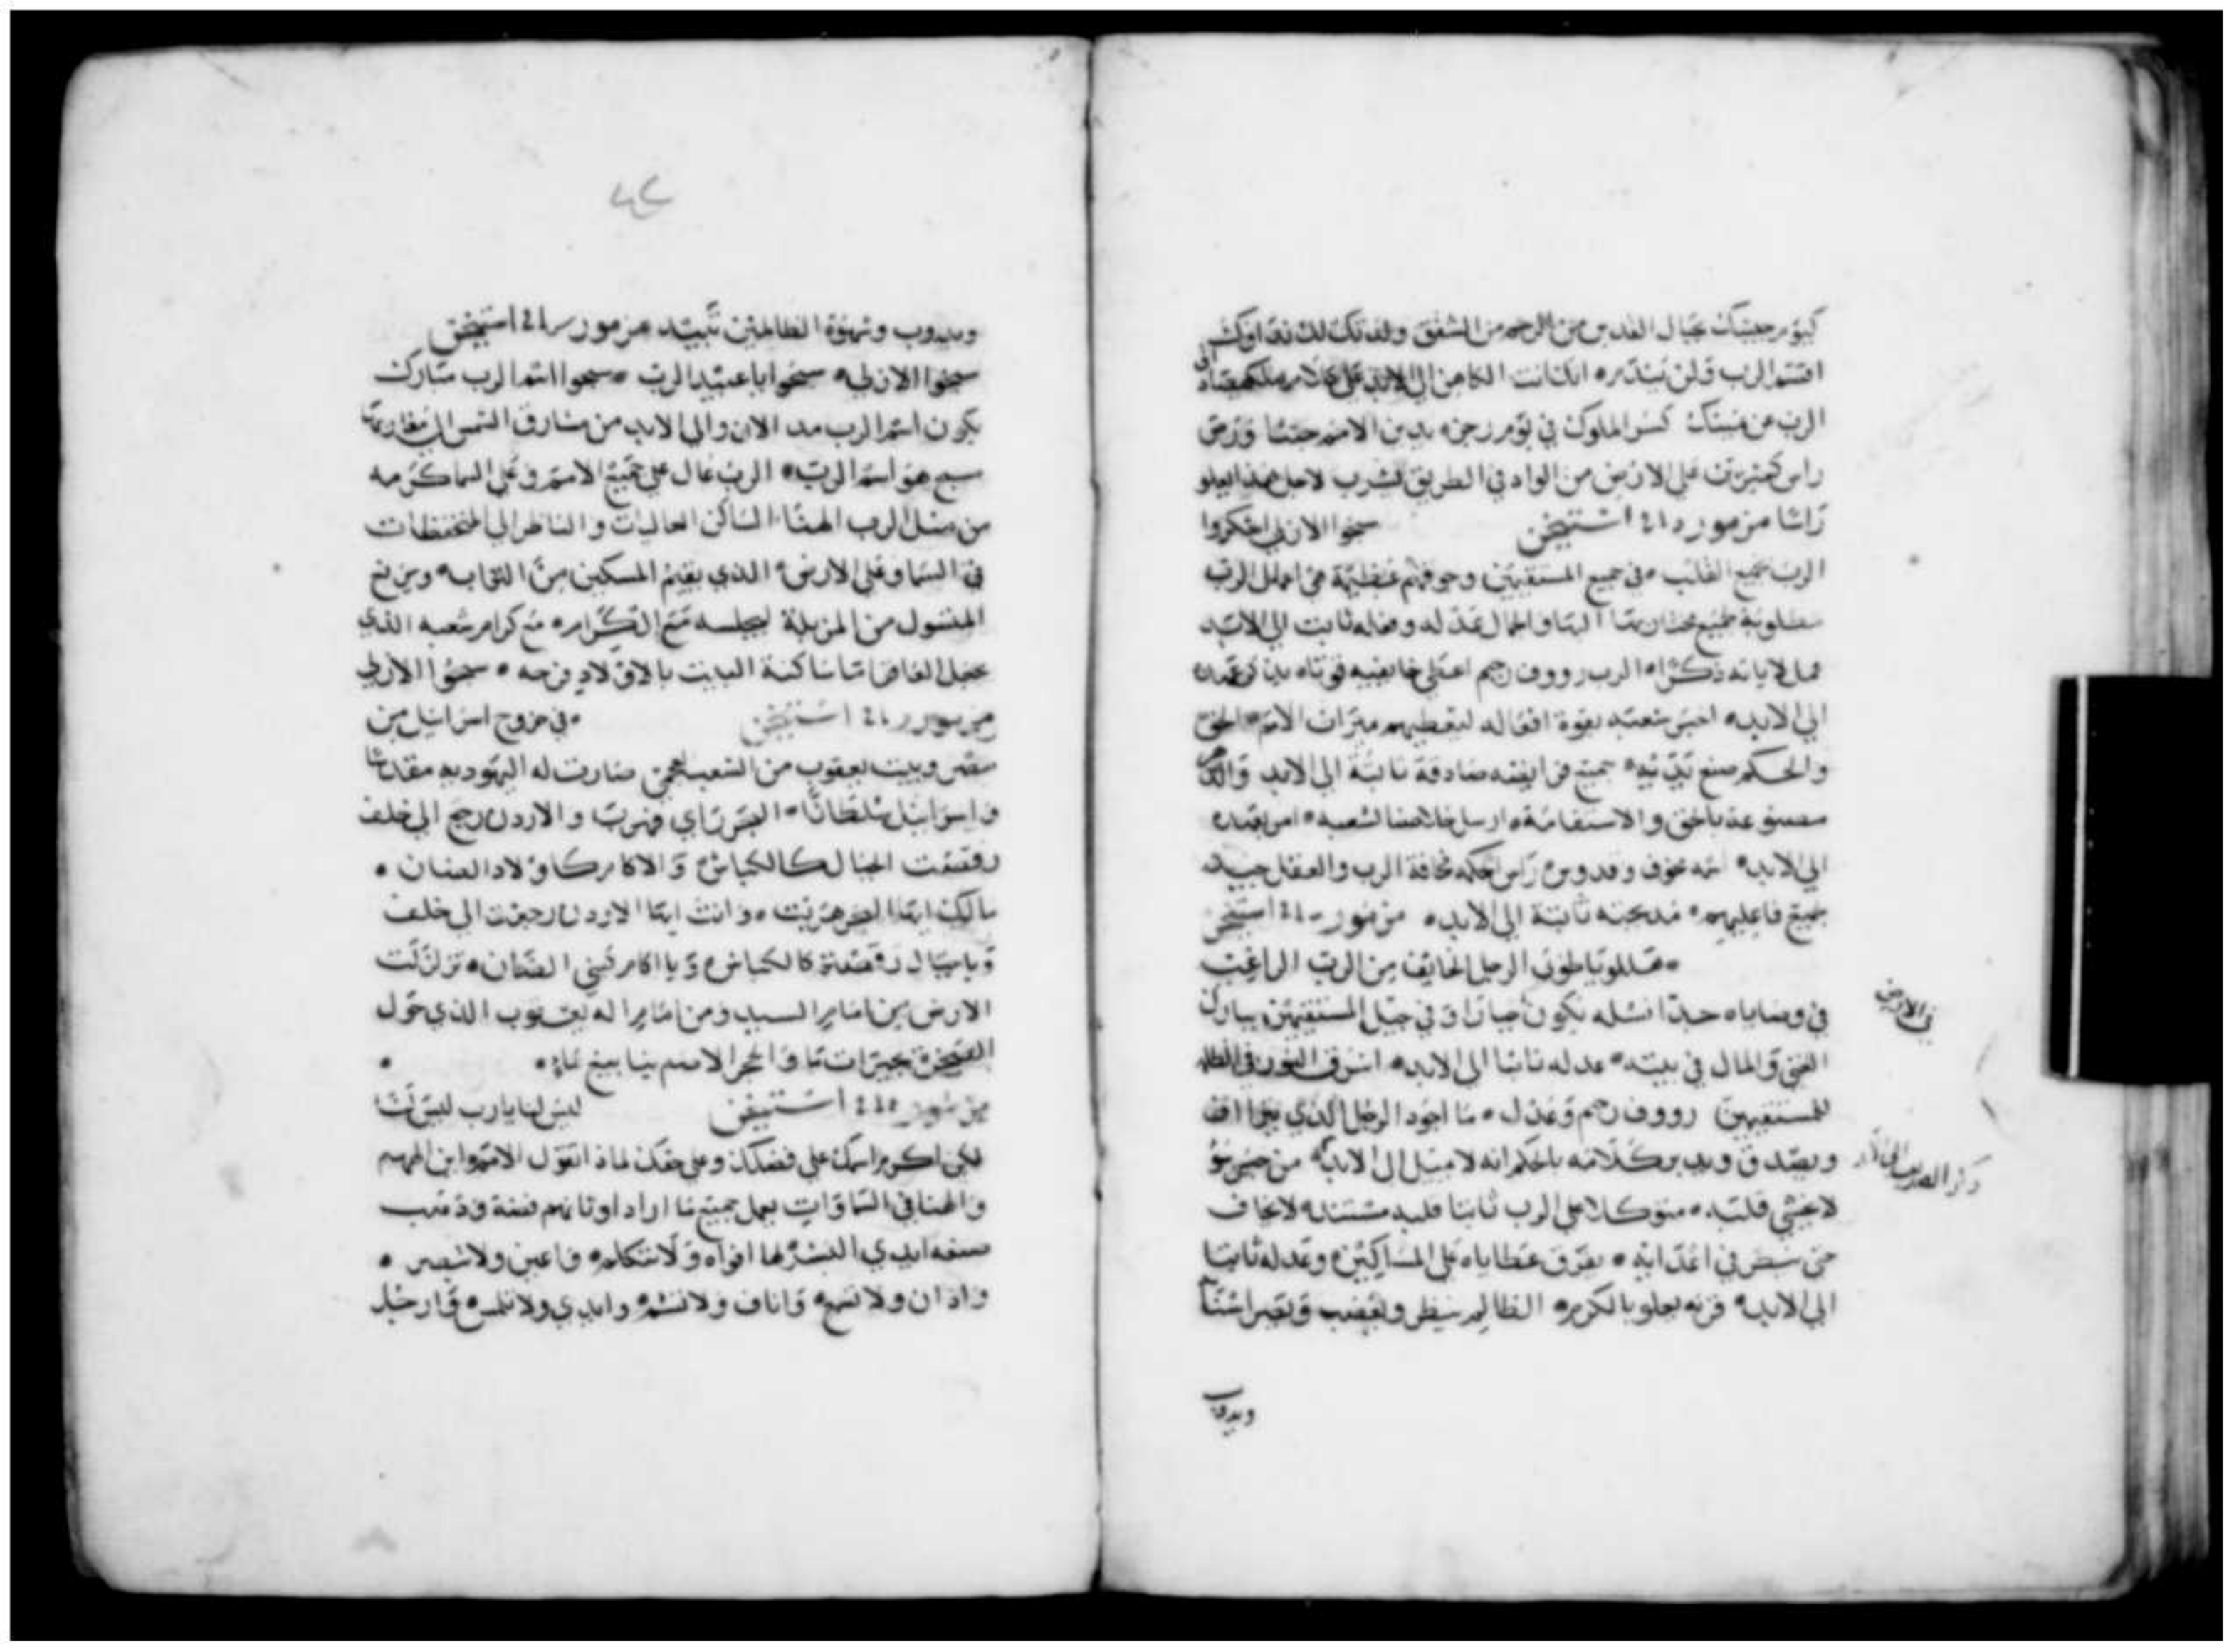 كيوم رجعتك بجبال القدس من الرحم من الشفق ولدتك لك نقد اوك
اقسم الرب ولن يتدبر انك انت الكاهن الى الابد على كلام ملكيصداق
الرب عن يمينك كسر الملوك في يوم رجزه يدين الامم جثثا ورض
راس كثيرين على الارض من الواد في الطريق يشرب لاجل هذا يعلو
راسا مزمور استيخن سبحوا الازلي اشكروا
الرب بجميع القلب في جميع المستقيمين وجوقهم عظيمة هي اعمال الرب
مطلوبة جميع مختاريها البها والجمال عمله وعدله ثابت الى الابد
عمل لاياته ذكرا الرب رووف رحيم اعطى خايفيه قوتاه يذكر عهده
الى الابد اخبر شعبه بقوة افعاله ليعطيهم ميراث الامم الحق
والحكم صنع يديه جميع فرايضه صادقة ثابتة الى الابد
مصنوعة بالحق والاستقامة ارسل خلاصا لشعبه امر بعهده
الى الابد اسمه مخوف وقدوس راس الحكمه مخافة الرب والعقل جيد
بجميع فاعليهم مدحته ثابتة الى الابد مزمور استيخن
هللويا طوبى الرجل الخايف من الرب الراغب
في وصاياه جدا نسله يكون جبارا وفي جيل المستقيمين يبارك
في الارض
الغنى والمال في بيته عدله ثابتا الى الابد اشرق النور في الظلمه
للمستقيمين رووف رحيم وعدل ما اجود الرجل الذي
ويصدق ويدبر كلامه بالحكم انه لا يميل الى الابد من خبر سو
لا يخشى قلبه متوكلا على الرب ثابتا قلبه مستندا لا يخاف
حتى ينظر في اعدايه يفرق عطاياه على المساكين وعدله ثابتا
الى الابد قرنه يعلو بالكرم الظالم ينظر ويغضب ويصر اسنانه
ويدوب
ويدوب وشهوة الظالمين تبيد مزمور استيخن
سبحوا الازلي سبحوا يا عبيد الرب سبحوا اسم الرب مبارك
يكون اسم الرب مد الان والى الابد من مشارق الشمس الى مغاربها
سبح هو اسم الرب الرب عال على جميع الامم وعلى السما كرمه
من مثل الرب الهنا الساكن العاليات والناظر الى المنخفظات
في السما وعلى الارض الذي يقيم المسكين من التراب ويرفع
من المزبلة ليجلسه مع الكرام مع كرام شعبه الذي
يجعل العاقر ساكنة البيت بالاولاد فرحه سبحوا الازلي
مزمور استيخن في خروج اسرائيل من
مصر وبيت يعقوب من الشعب العجمي صارت له اليهوديه مقدسا
واسرائيل سلطانا البحر راي وهرب والاردن رجع الى خلف
رقصت الجبال كالكباش والاكام كاولاد الضان
مالك ايها البحر هربت وانت ايها الاردن رجعت الى خلف
ويا جبال رقصتم كالكباش ويا اكام كبني الضان تزلزلت
الارض من امام السيد ومن امام اله يعقوب الذي حول
الصخرة بحيرات ما والحجر الاصم ينابيع ماء
مزمور استيخن ليس لنا يا رب ليس لنا
لكن اكرم اسمك على فضلك وعلى حقك لماذا تقول الامم اين الههم
والهنا في السماوات يعمل جميع ما اراد اوثانهم فضة وذهب
صنعه ايدي البشر لها افواه ولا تتكلم واعين ولا تبصر
واذان ولا تسمع واناف ولا تشم وايدي ولا تلمس وارجل